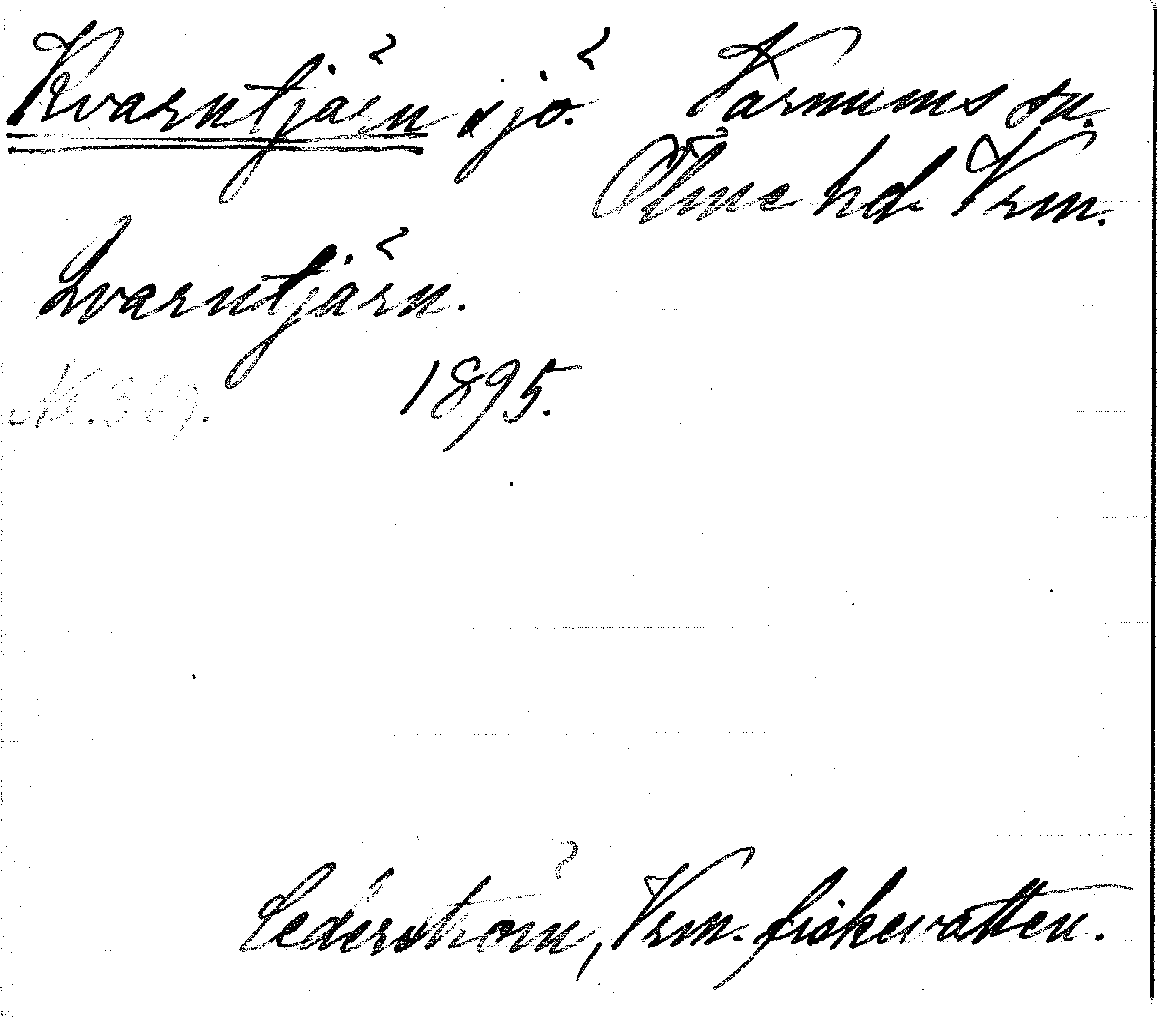 Kvarntjärn sjö. Varnums sn.
Ölme hd. Vrm.
Qvarntjärn.
Nr. 369. 1895.
Cederström, Vrm. fiskevatten.